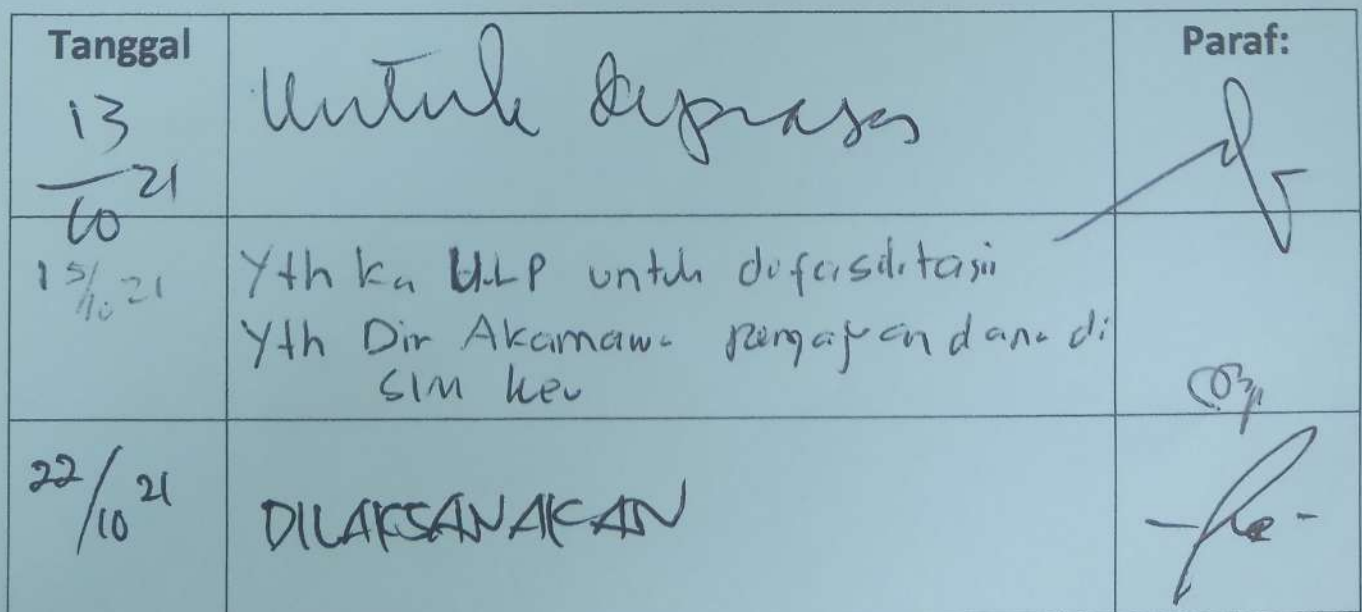 Tanggal
Paraf:
13/10 21
Untuk diproses
15/10 21
Yth Ka ULP untuk difasilitasi
Yth Dir Akamawa pengajuan dana di
SIM keu
22/10 21
DILAKSANAKAN